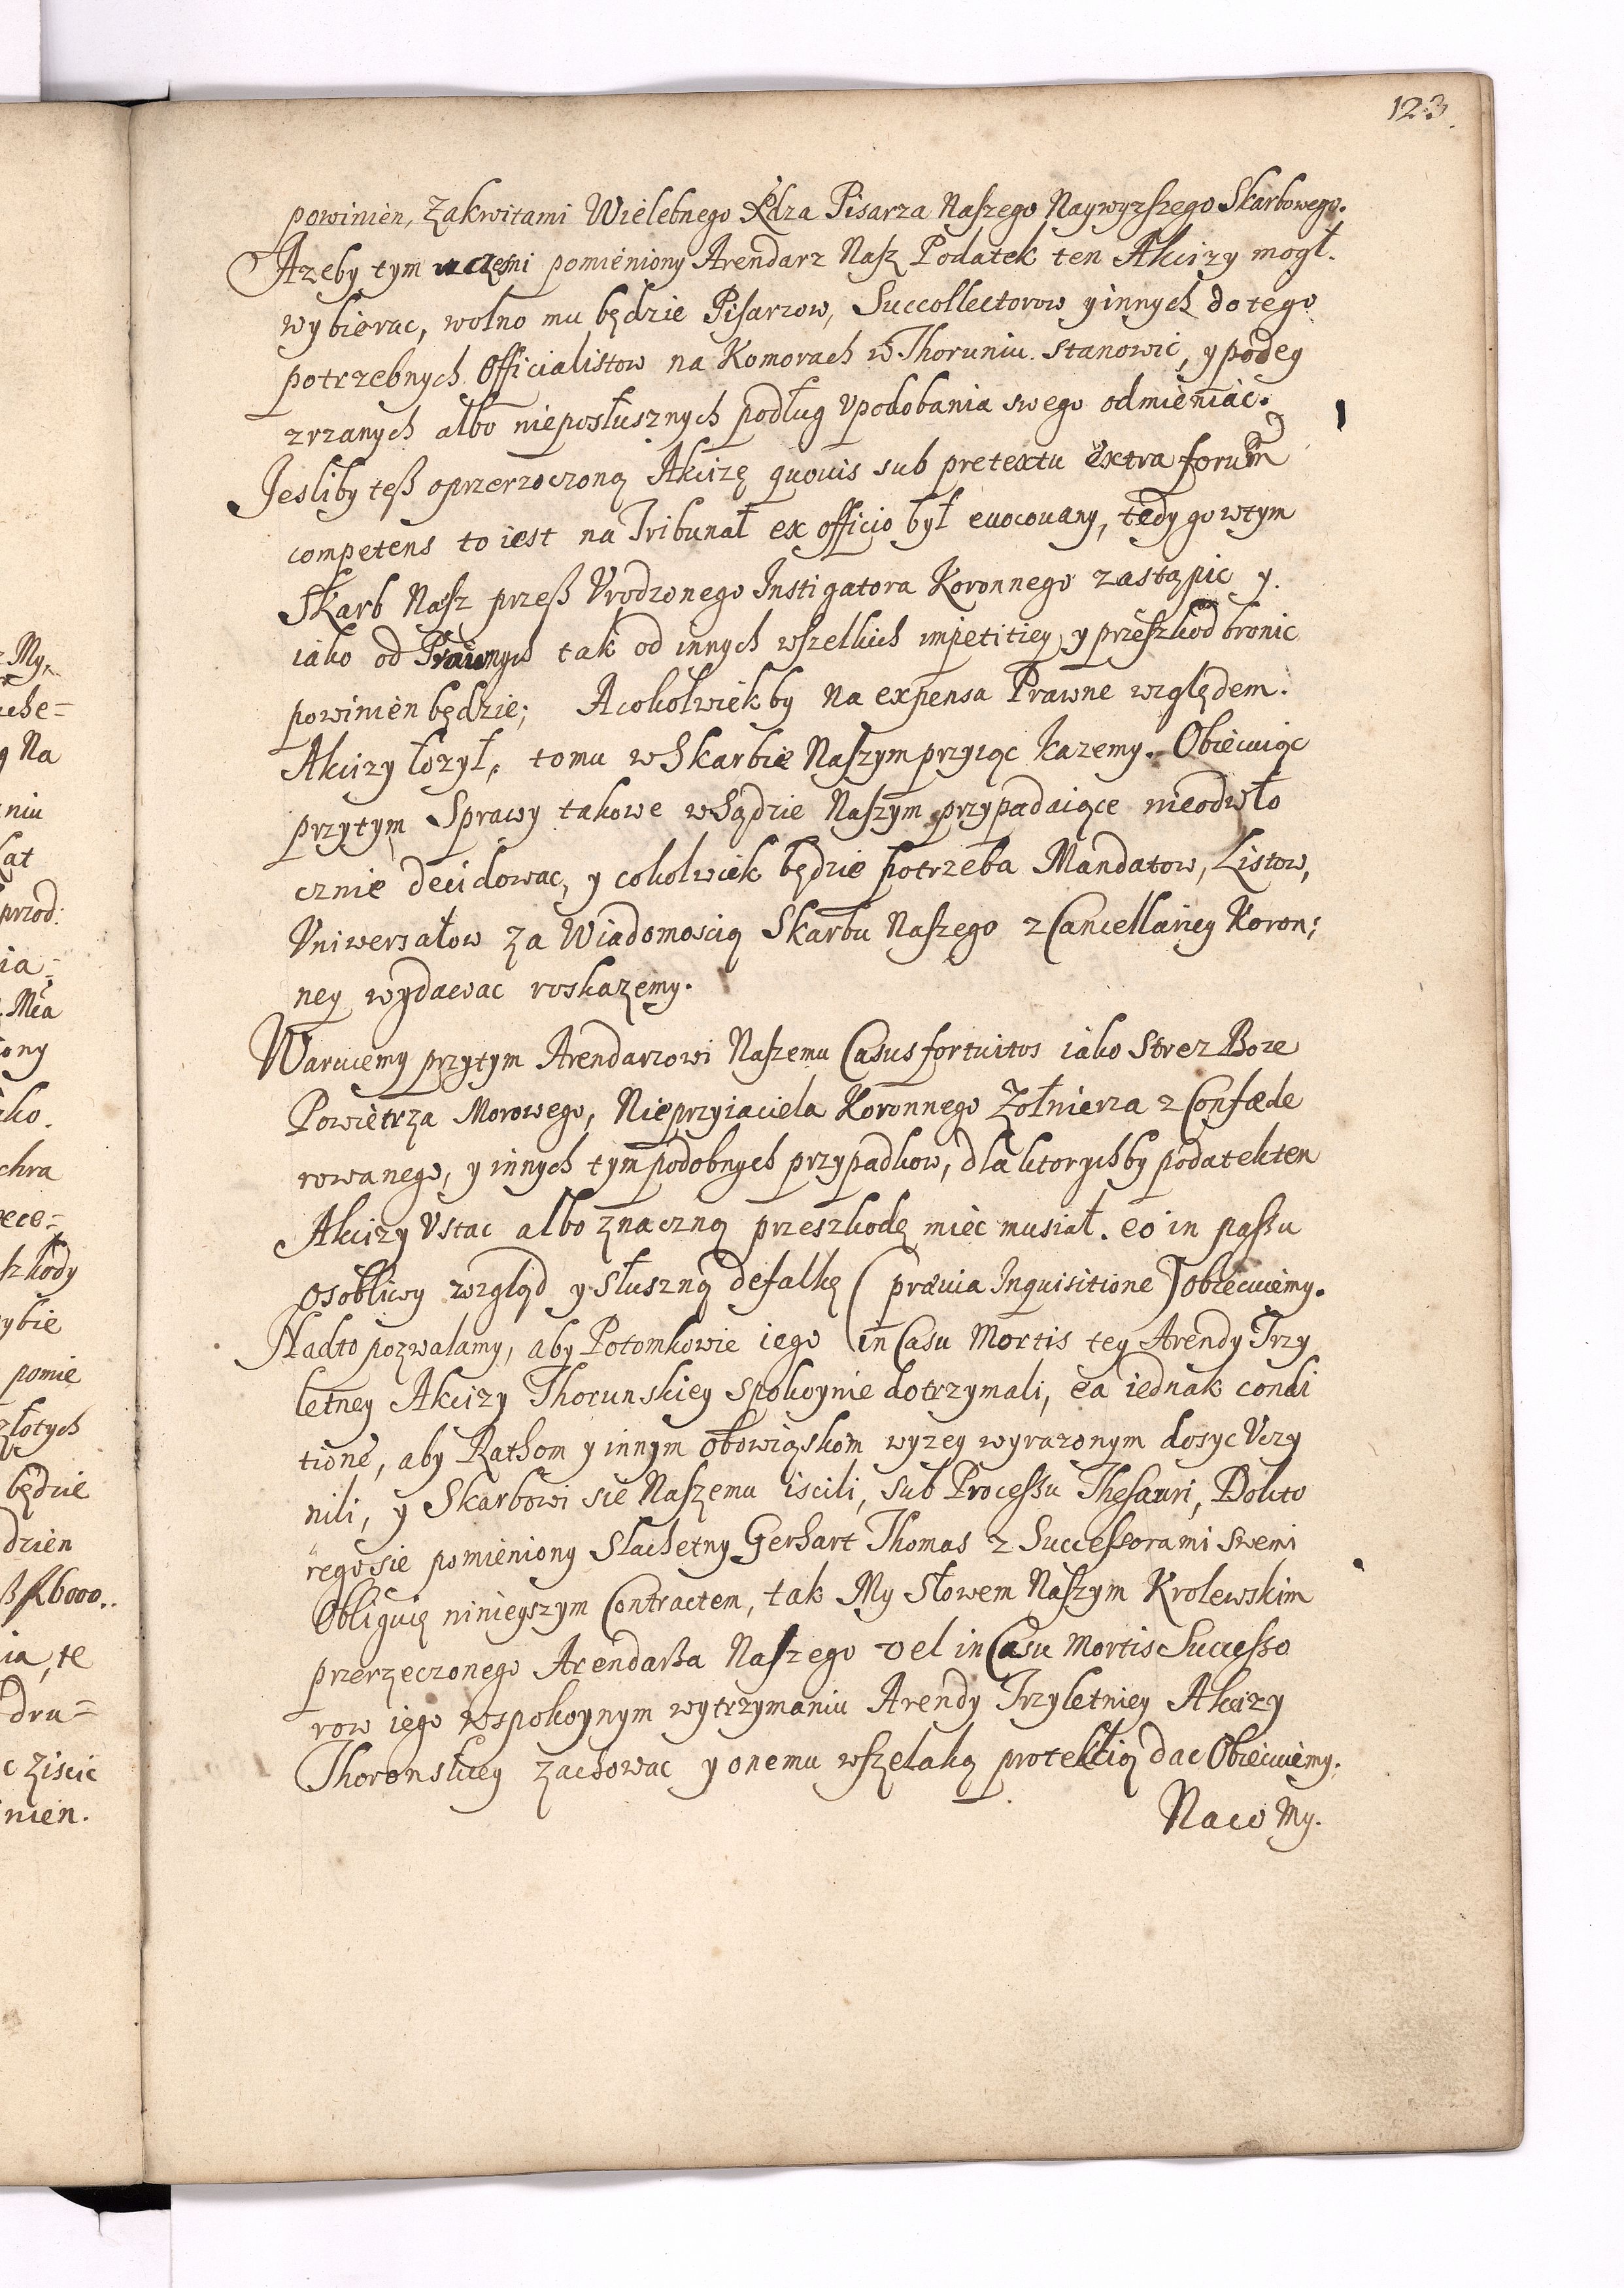 123.
powinien, Zakwitami Wielebnego Xdza Pisarza Naszego Naywyzszego Skarbowego.
Azeby tym pomieniony Arendarz Nasz Podatek ten Akcizy mogł.
wybierac, wolno mu będzie Pisarzow, Succollectorow y innych do tego
potrzebnych Officialistow na Komorach w Thoruniu stanowic, y podey
zrzanych albo nieposłusznych podług upodobania swego odmieniac.
Jesliby teß o przerzoczoną Akcizę quouis sub pretextu extra forum
competens to iest na Tribunał ex officio był euocouany, tedy go w tym
Skarb Nasz przeß Vrodzonego Instigatora Koronnego zastąpic y.
iako od Prawnych tak od innych wszelkich impetitiey y przeszkod bronic
powinien będzie; A cokolwiek by na expensa Prawne względem.
Akcizy łozył, to mu w Skarbie Naszym przyiąc kazemy. Obiecuiąc
przytym Sprawy takowe w Sądzie Naszym przypadaiące nieodwło
cznie decidowac, y cokolwiek będzie potrzeba Mandatow, Listow,
Vniwersałow za Wiadomoscią Skarbu Naszego z Cancellariey Koron;
ney wydawac roskazemy.
Waruiemy przytym Arendarzowi Naszemu Casus fortuitos iako Strez Boze
Powietrza Morowego, Nieprzyiaciela Koronnego Zołnierza z Confæde
rowanego, y innych tym podobnych przypadkow, dla ktorych by podatek ten
Akcizy Vstac albo znaczną przeszkodę miec musiał. eo in passu
osobliwy wzgląd y słuszną defalkę (præuia Inquisitione) obiecuiemy.
Nadto pozwalamy, aby Potomkowie iego in Casu Mortis tey Arendy Trzy
letney Akcizy Thorunskiey spokoynie dotrzymali, ea iednak condi
tione, aby Rathom y innym obowiąskom wyzey wyrazonym dosyc Vczy
nili, y Skarbowi sie Naszemu iscili, sub Processu Thesauri, Dokto
rego sie pomieniony Slachetny Gerhart Thomas z Successorami swemi
Obliguię ninieyszym Contractem, tak My Słowem Naszym Krolewskim
przerzeczonego Arendarßa Naszego vel in Casu Mortis Successo
row iego wspokoynym wytrzymaniu Arendy Trzyletniey Akcizy
Thoronskiey zachowac y onemu wszelaką protekcią dac Obiecuiemy.
Naco My.